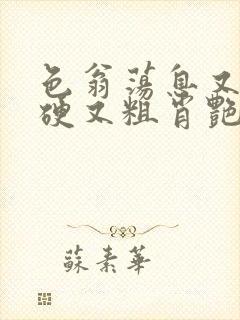 色翁荡息又
硬又粗肖艳
蘇素華